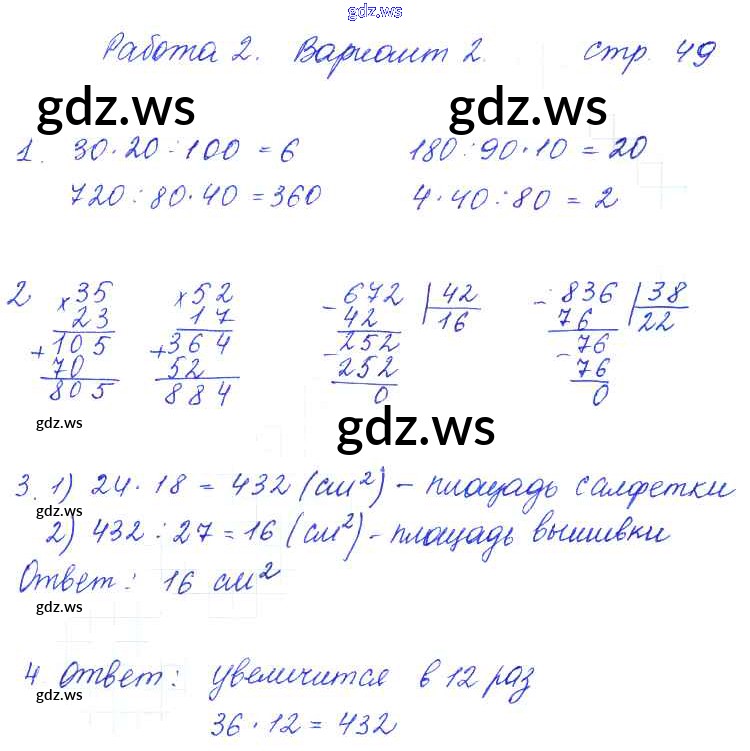 gdz.ws
Работа 2. Вариант 2. стр. 49
gdz.ws gdz.ws
1. 30·20:100 = 6 180:90·10 = 20
720:80·40=360 4·40:80 = 2
2 ×35 ×52 -672 |42 -836 |38
23 17 42 16 76 22
+105 +364 -252 -76
70 52 252 76
805 884 0 0
gdz.ws gdz.ws
3. 1) 24·18 = 432 (см²) - площадь салфетки
gdz.ws
2) 432:27=16 (см²) - площадь вышивки
Ответ: 16 см²
gdz.ws
4. Ответ: увеличится в 12 раз
gdz.ws
36·12=432